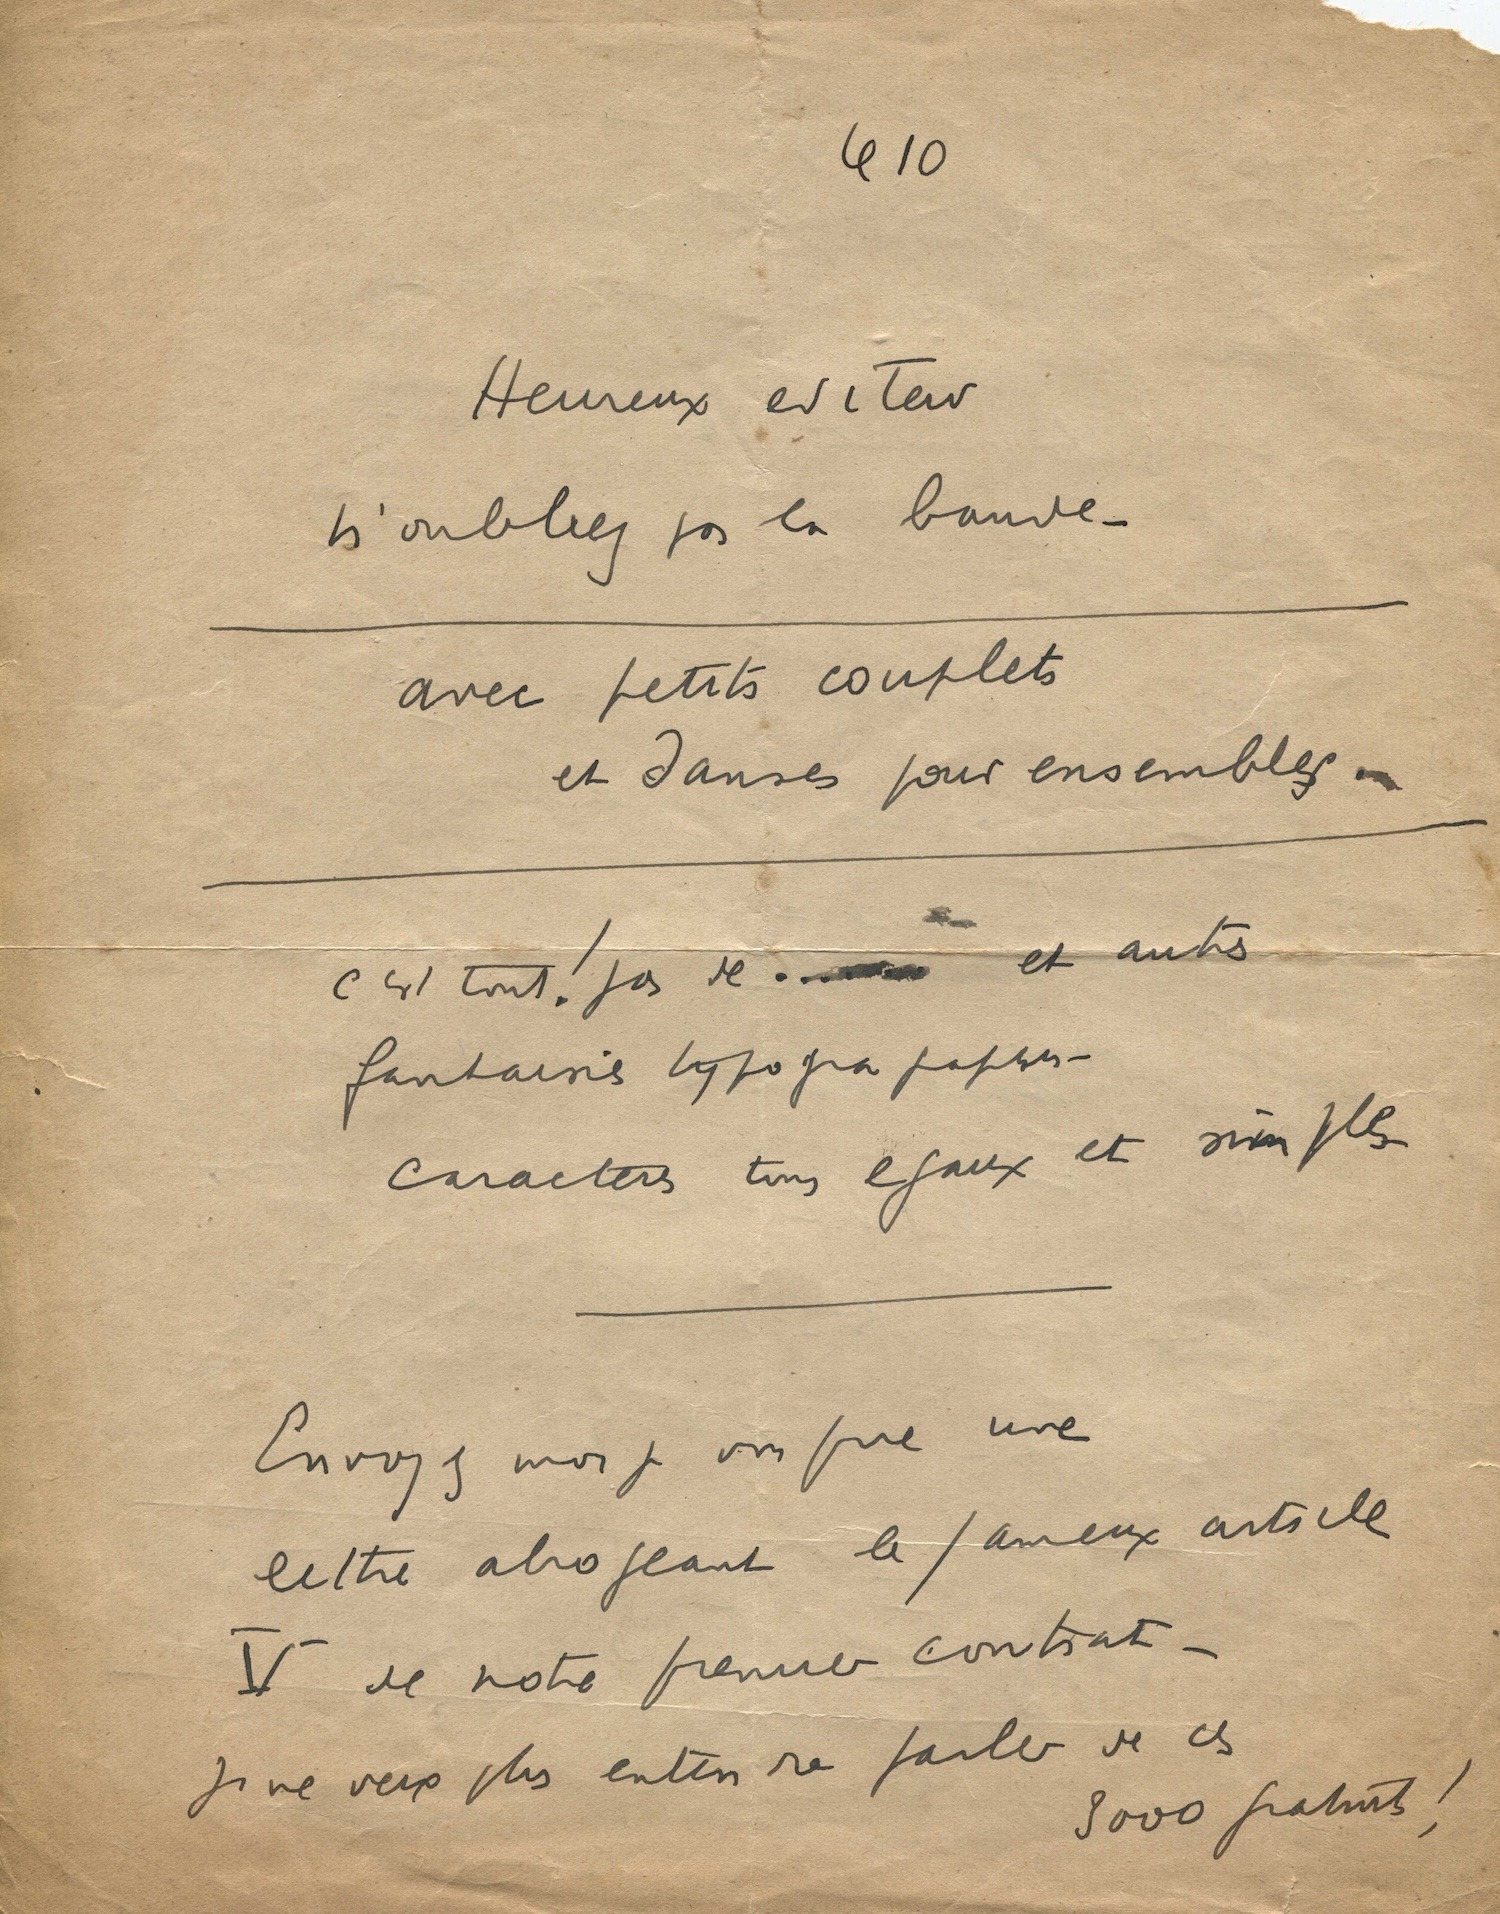 Le 10
Heureux editeur
N'oubliez pas la bande_
avec petits couplets
et danses pour ensembles _
c'est tout! pas de ... et autres
fantaisies typographiques_
caracteres tous egaux et simples
Envoyez moi je vous prie une
lettre abrogeant le fameux article
V de notre premier contrat _
Je ne veux plus entendre parler de ces
3000 gratuits!